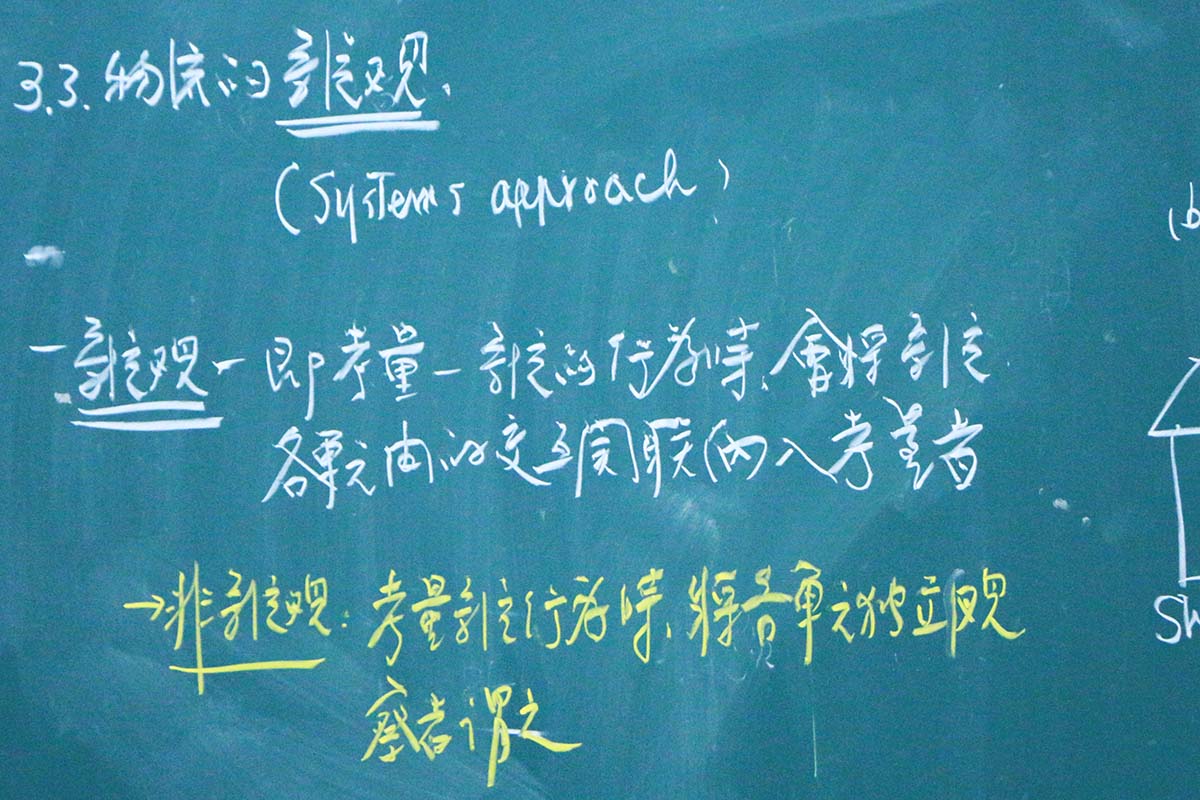 3.3. 物流的系统观.
(Systems approach)
- 系统观 - 即考量一系统的行为時、會将系统
各單元由的交互関联纳入考量者
→非系统观: 考量系统行为時、將各單元独立观
察者谓之
(b
SH